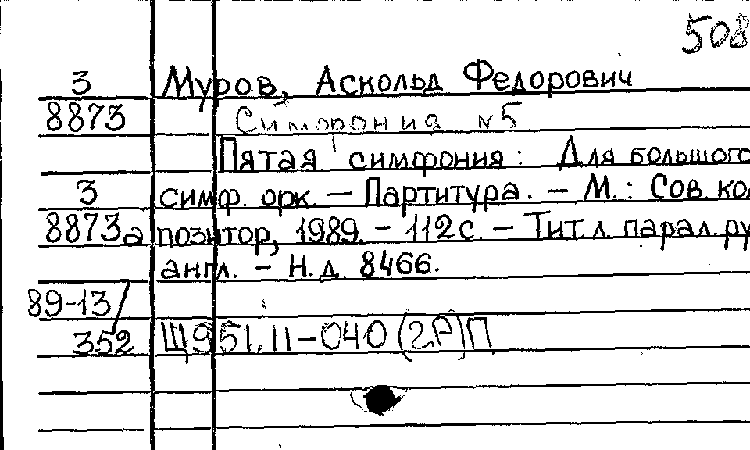 508
3 Муров, Аскольд Федорович
8873 Симфония №5
Пятая симфония: Для большого
3 симф. орк. – Партитура. – М.: Сов. ком
8873а позитор, 1989. – 112 с. – Тит. л. парал. ру
англ. – Н. д. 8466.
89-13/
352 Щ951.11-040(2Р)П